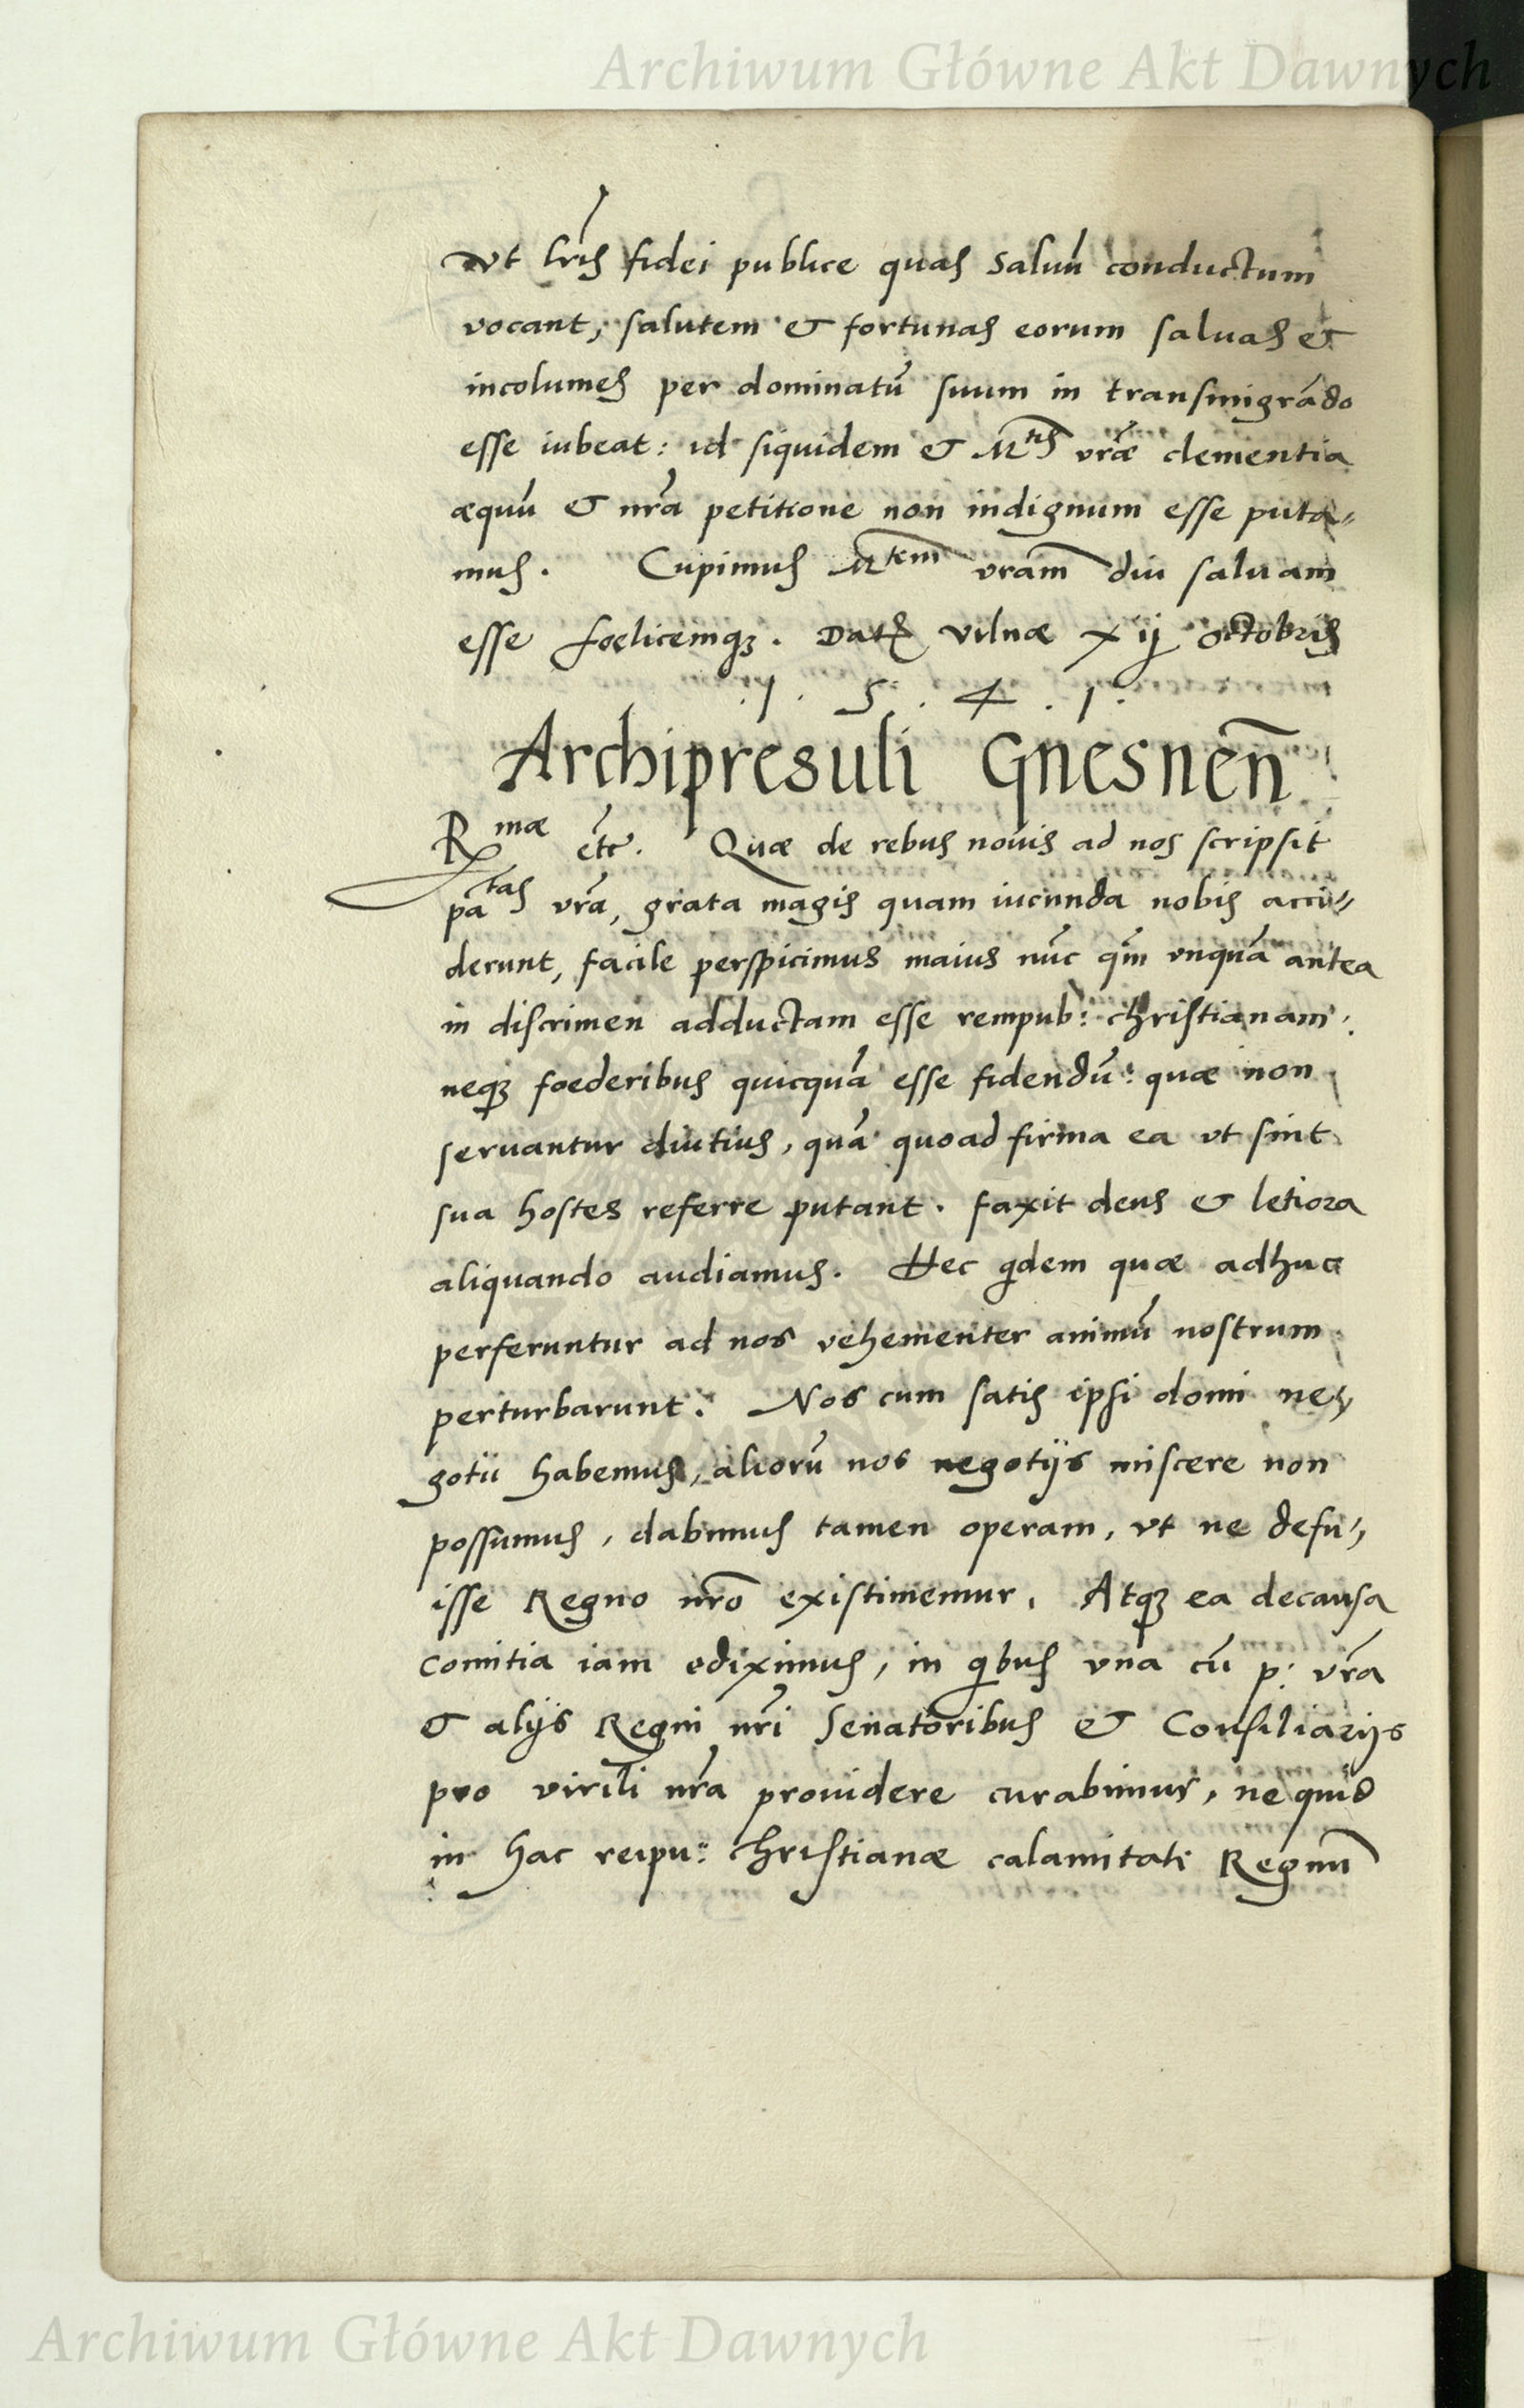 Archiwum Główne Akt Dawnych
vt lr̃is fidei publice quas saluũ conductum
vocant, salutem & fortunas eorum saluas &
incolumes per dominatũ suum in transmigrãdo
esse iubeat: id siquidem & Mtis vr̃æ clementia
æquũ & nr̃a petitione non indignum esse puta-
mus. Cupimus Mtem vram̃ diu saluam
esse foelicemqȝ. Datꝭ Vilnæ xij Octobris
.1.5.4.1.
Archipresuli Gnesnen̄
Rmæ etc̃. Quæ de rebus nouis ad nos scripsit
patas vr̃a, grata magis quam iucunda nobis acci-
derunt, facile perspicimus maius nũc qm̃ vnquã antea
in discrimen adductam esse rempub: christianam:
neqȝ foederibus quicquã esse fidendũ: quæ non
seruantur diutius, quã quoad firma ea vt sint
sua hostes referre putant. faxit deus & letiora
aliquando audiamus. Hec qdem quæ adhuc
perferuntur ad nos vehementer animũ nostrum
perturbarunt. Nos cum satis ipsi domi ne-
gotii habemus, aliorũ nos negotijs miscere non
possumus, dabimus tamen operam, vt ne defu-
isse Regno nr̃o existimemur. Atqȝ ea decausa
comitia iam ediximus, in qbus vna cũ p: vr̃a
& alijs Regni nr̃i Senatoribus & Consiliarijs
pro virili nr̃a prouidere curabimus, ne quid
in hac reipu: christianæ calamitate Regnũ
Archiwum Główne Akt Dawnych